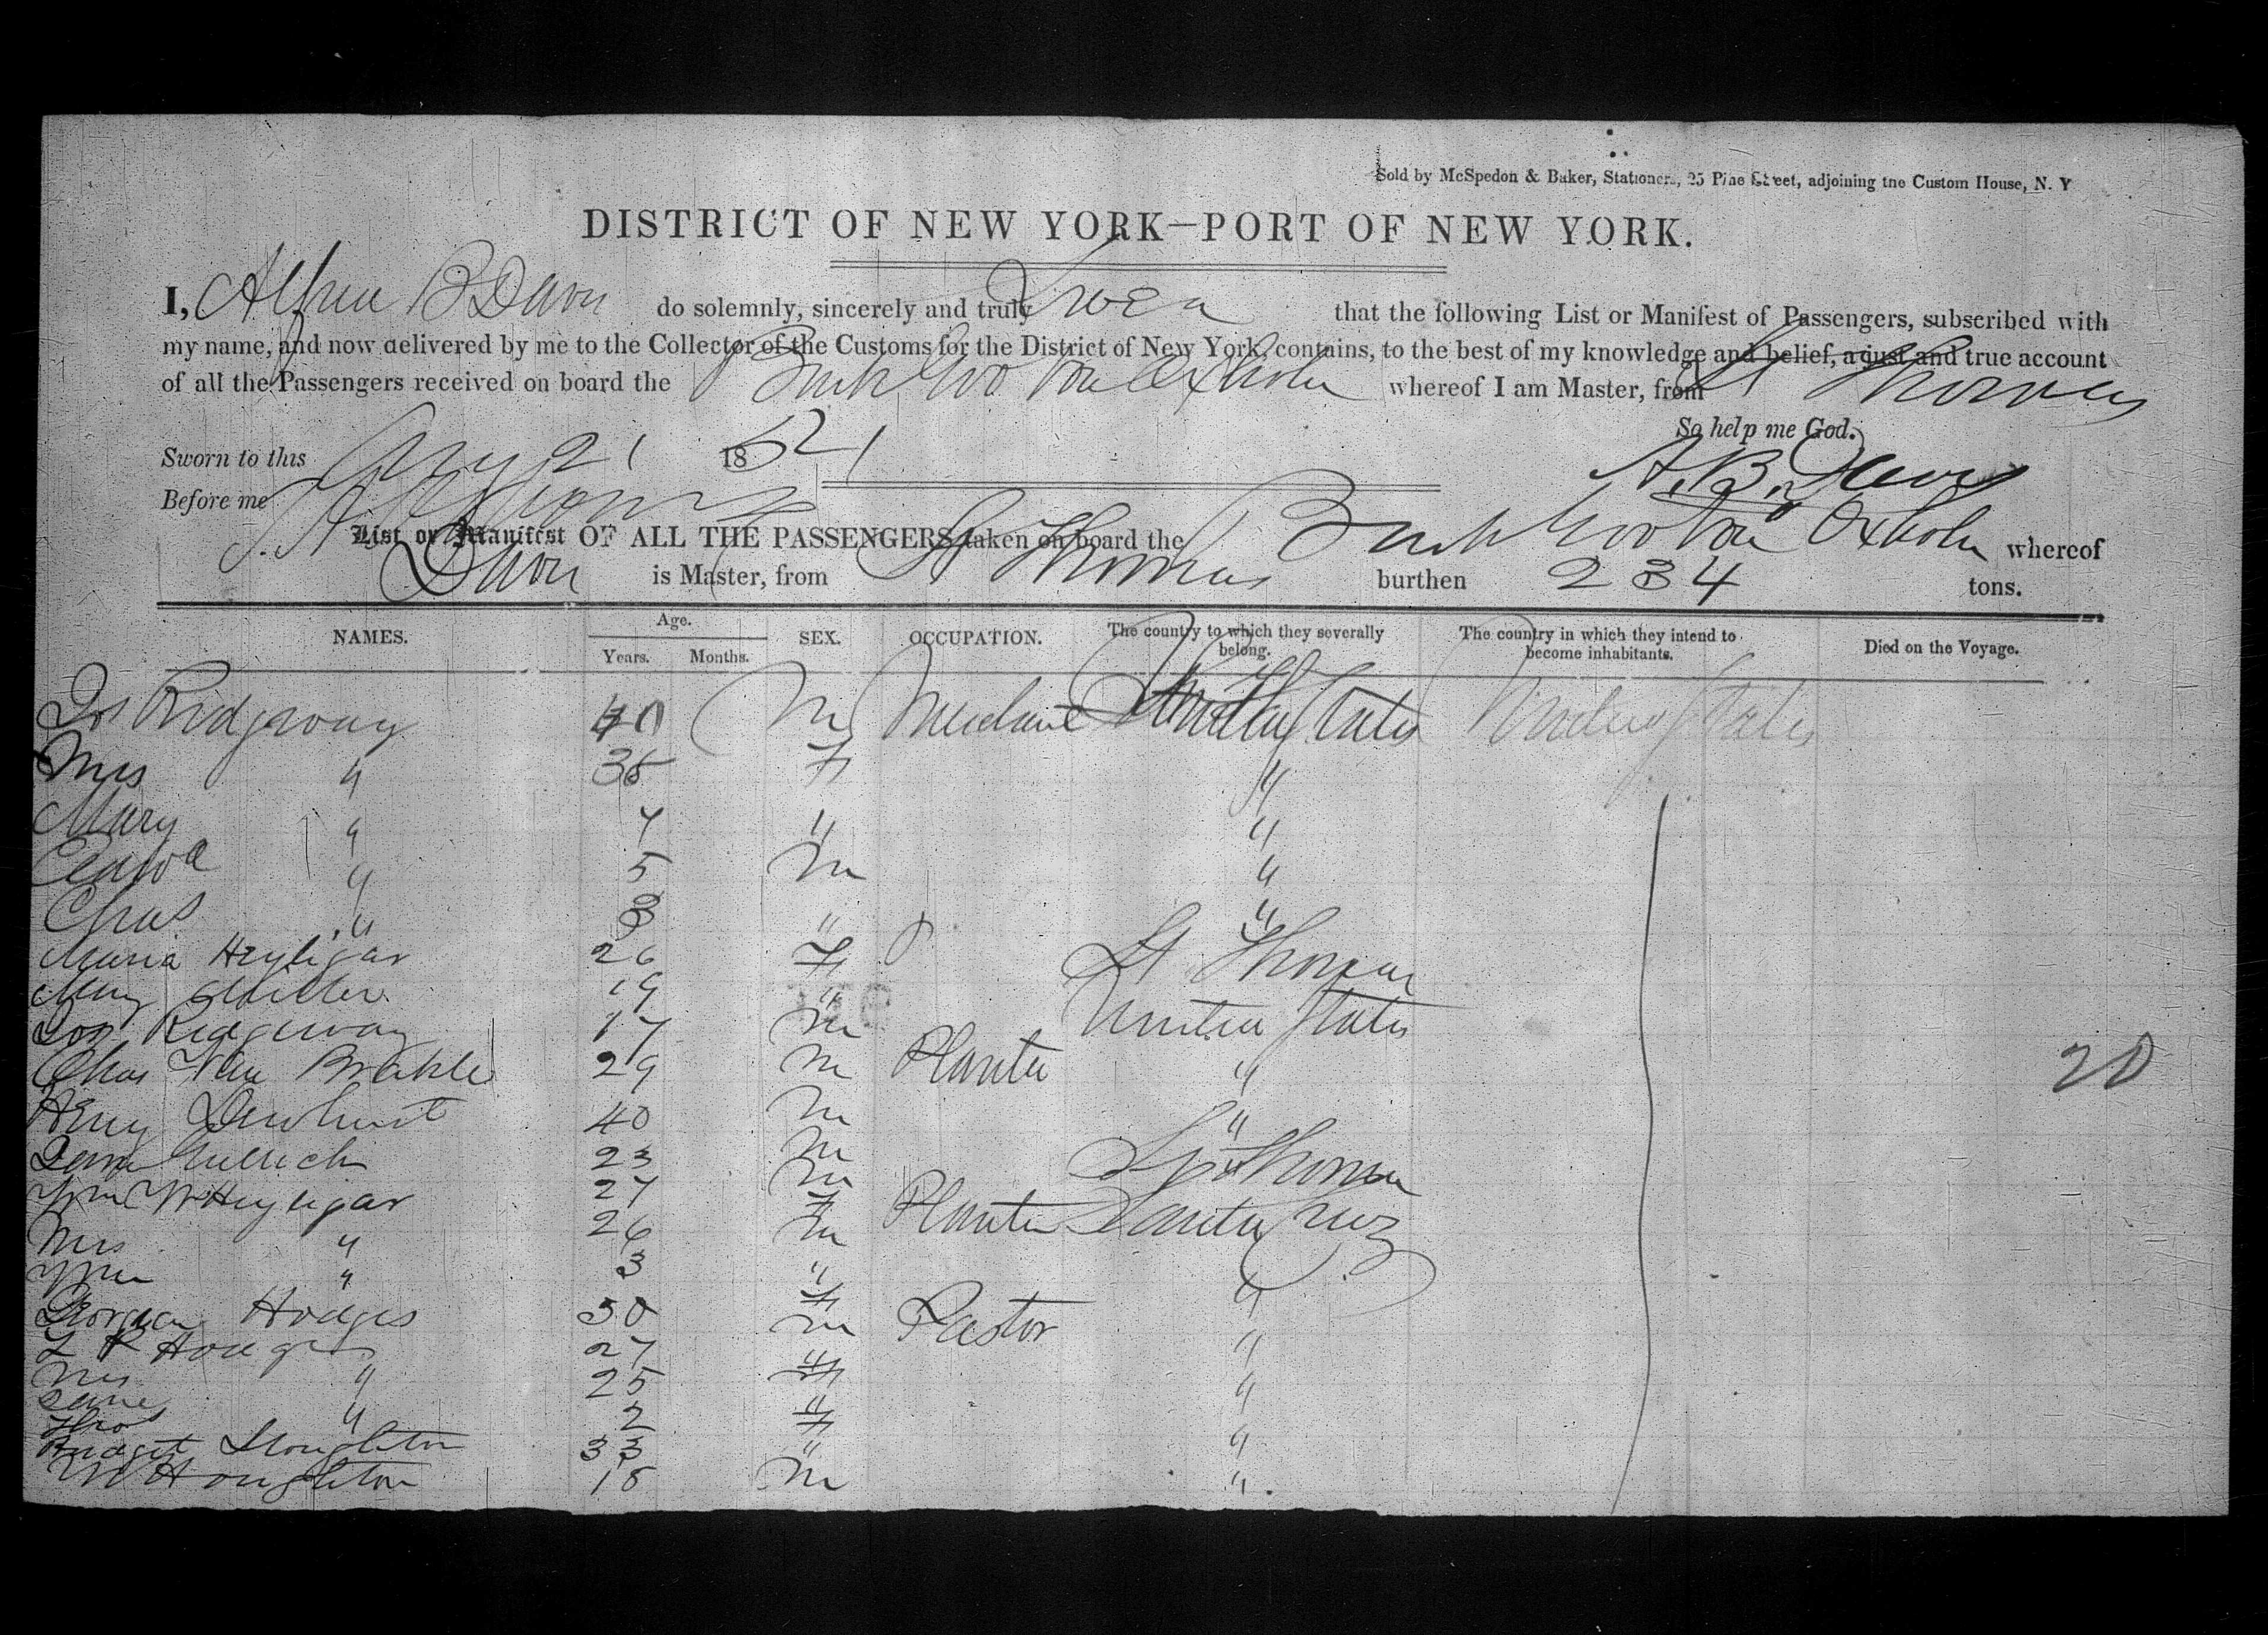 Sold by McSpedon & Baker, Stationers, 25 Pine Street, adjoining the Custom House, N. Y
DISTRICT OF NEW YORK—PORT OF NEW YORK.
I, B Davis do solemnly, sincerely and truly Swear that the following List or Manifest of Passengers, subscribed with
my name, and now delivered by me to the Collector of the Customs for the District of New York, contains, to the best of my knowledge and belief, a just and true account
of all the Passengers received on board the whereof I am Master, from St Thomas
So help me God.
Sworn to this 21 1852
A. B. Davis
Before me
List or Manifest OF ALL THE PASSENGERS taken on board the Oxholm whereof
Davis is Master, from St Thomas burthen 234 tons.
NAMES. Age. Years. Months. SEX. OCCUPATION. The country to which they severally belong. The country in which they intend to become inhabitants. Died on the Voyage.
Jos Ridgway 40 M Merchant United States United States
Mrs " 35 F "
Mary " 7 " "
Edwd " 5 M "
Chas " 3 " "
Maria Heyligar 26 F St Thomas
Mary 19 " United States
Jos Ridgeway 17 M
Chas Van Brakle 29 M Planter "
Henry Dewhurst 40 M "
23 M St Thomas
Wm Heyligar 27 M Planter Santa Cruz
Mrs " 26 F
Wm " 3 M
Hodges 50 F "
Hodges 27 M Pastor "
Mrs " 25 F "
Jane " 2 "
Bridget Houghton 33 F "
W Houghton 18 M "
20